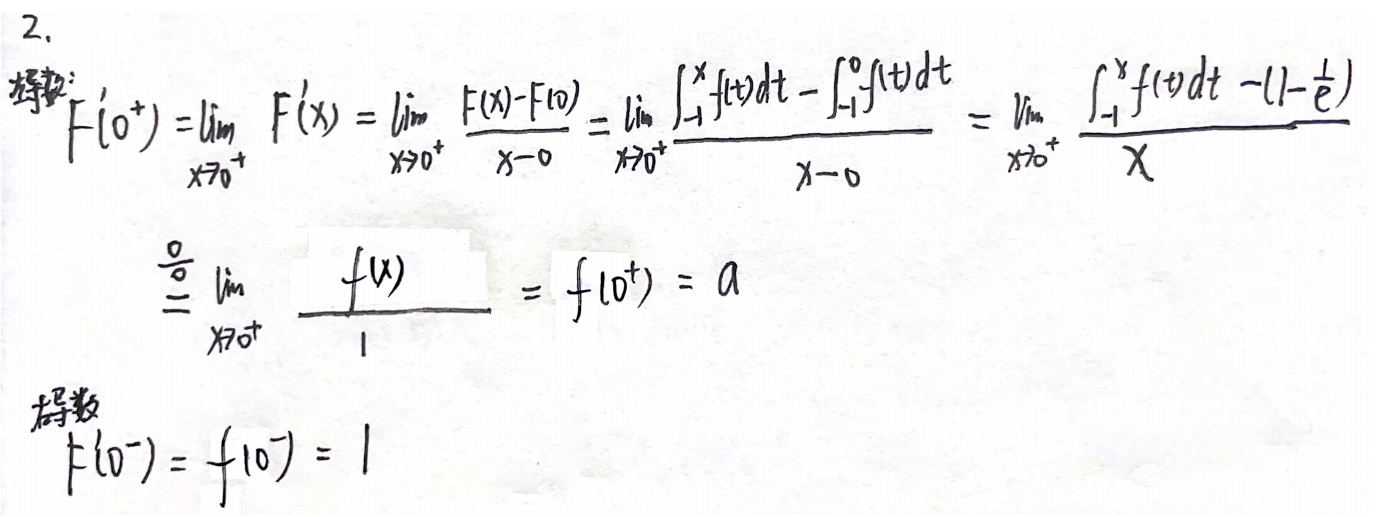 2.
右导数: F'(0⁺) = lim_{x→0⁺} F'(x) = lim_{x→0⁺} \frac{F(x)-F(0)}{x-0} = lim_{x→0⁺} \frac{∫_{-1}^{x} f(t)dt - ∫_{-1}^{0} f(t)dt}{x-0} = lim_{x→0⁺} \frac{∫_{-1}^{x} f(t)dt - (1-\frac{1}{e})}{x}
\overset{\frac{0}{0}}{=} lim_{x→0⁺} \frac{f(x)}{1} = f(0⁺) = a
左导数
F'(0⁻) = f(0⁻) = 1